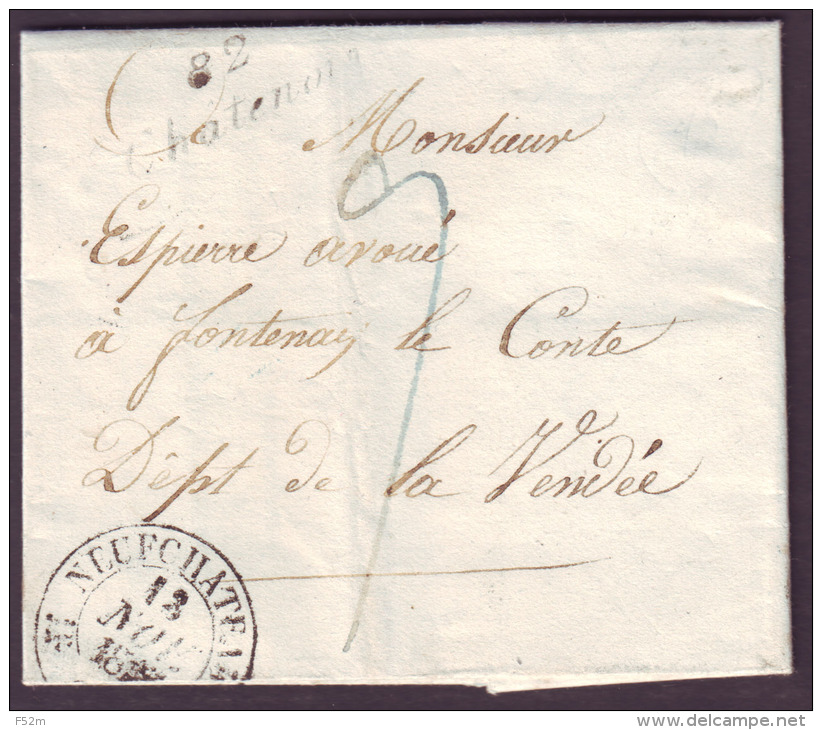 82
Châtenois
Monsieur
Espierre avoué
à fontenay le Conte
Dépt de la Vendée
NEUFCHATEAU
13
NOV
F52m
www.delcampe.net